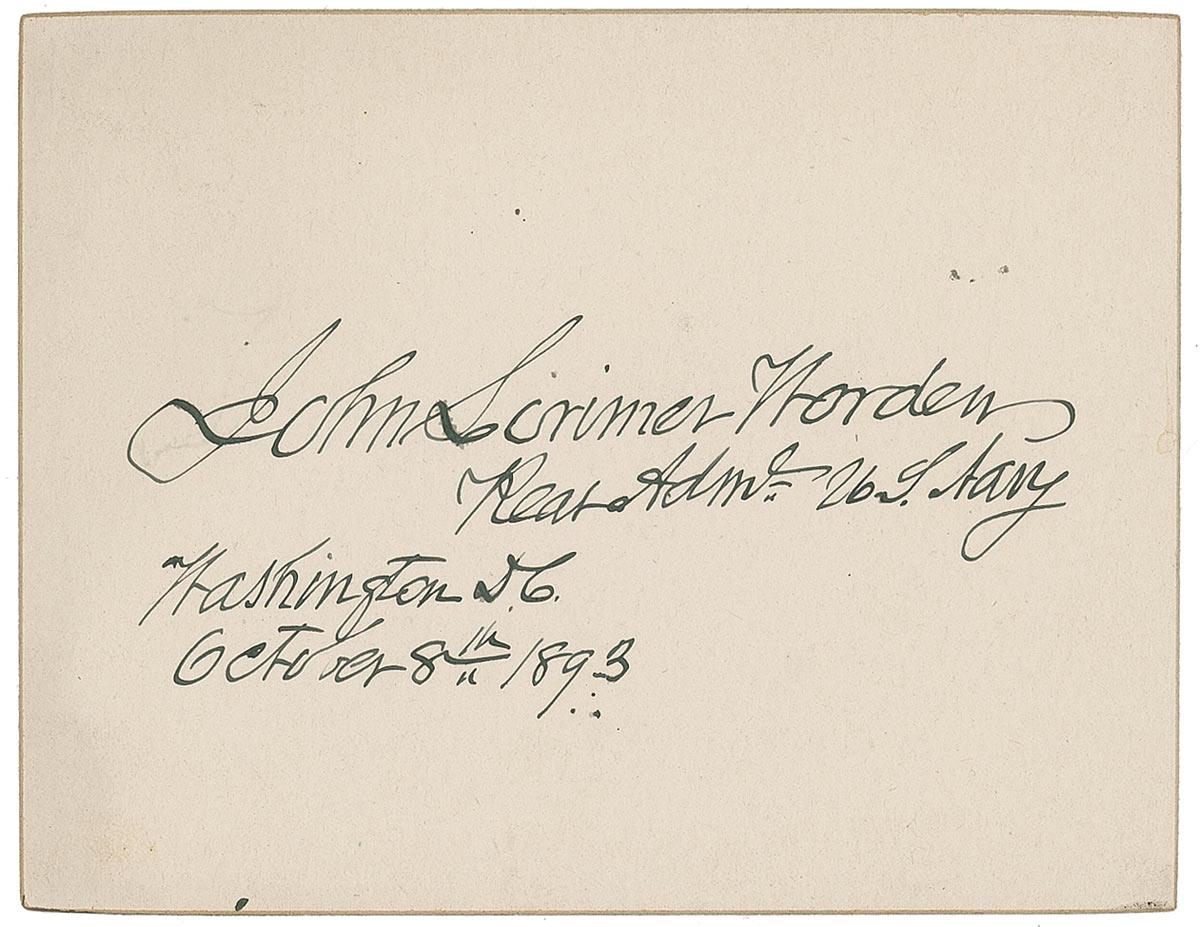 John Lorimer Worden
Rear Adml U.S. Navy
Washington D.C.
October 8th 1893